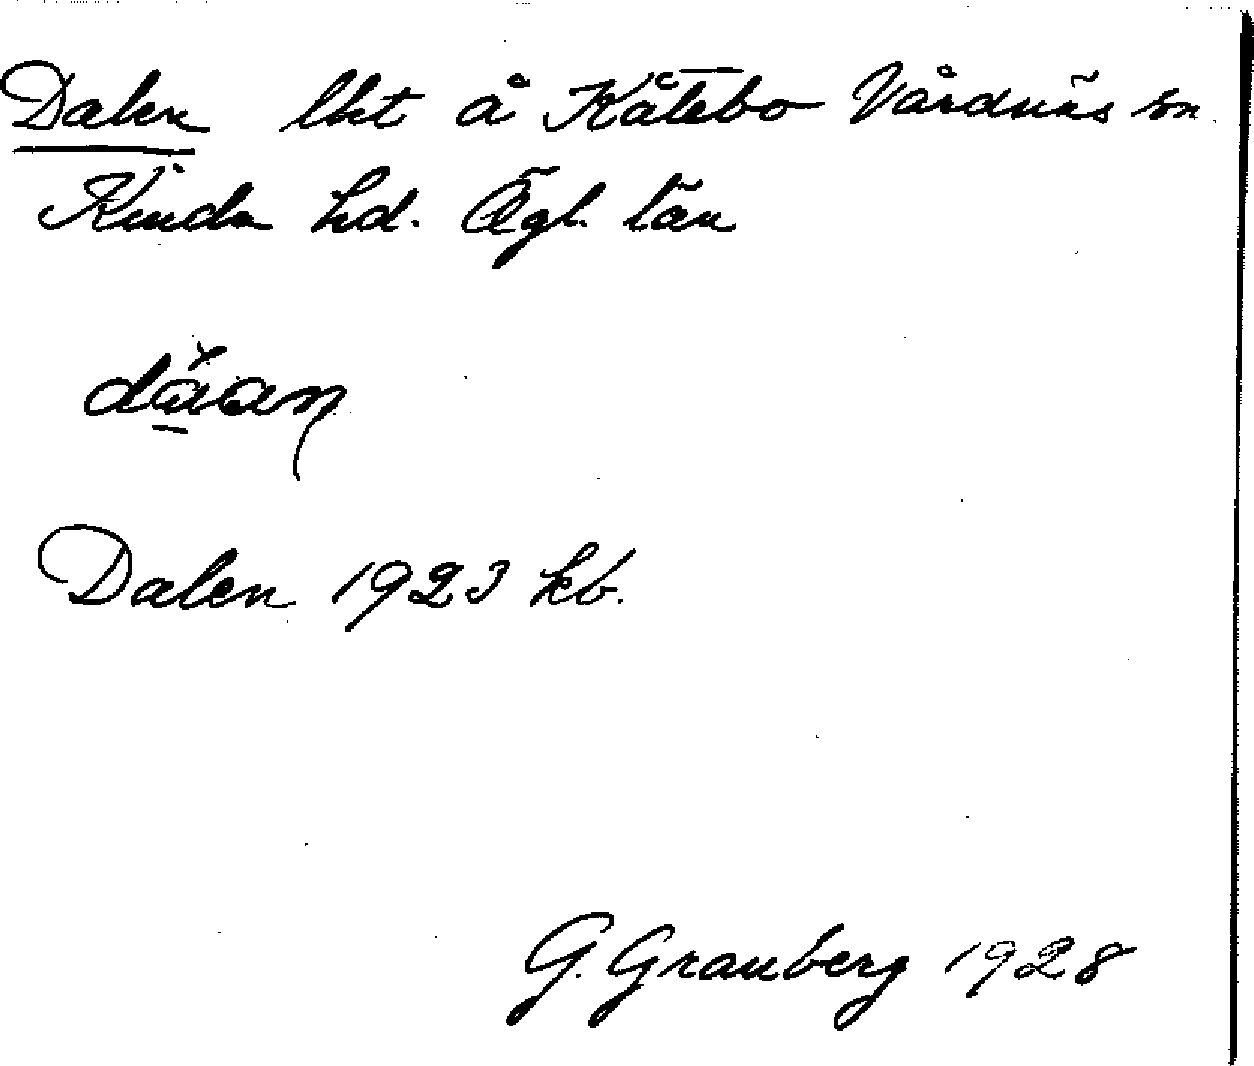 Dalen lht å Kåtebo Vårdnäs sn
Kinda hd. Ögl. län
dàan
Dalen 1923 kb.
G. Granberg 1928